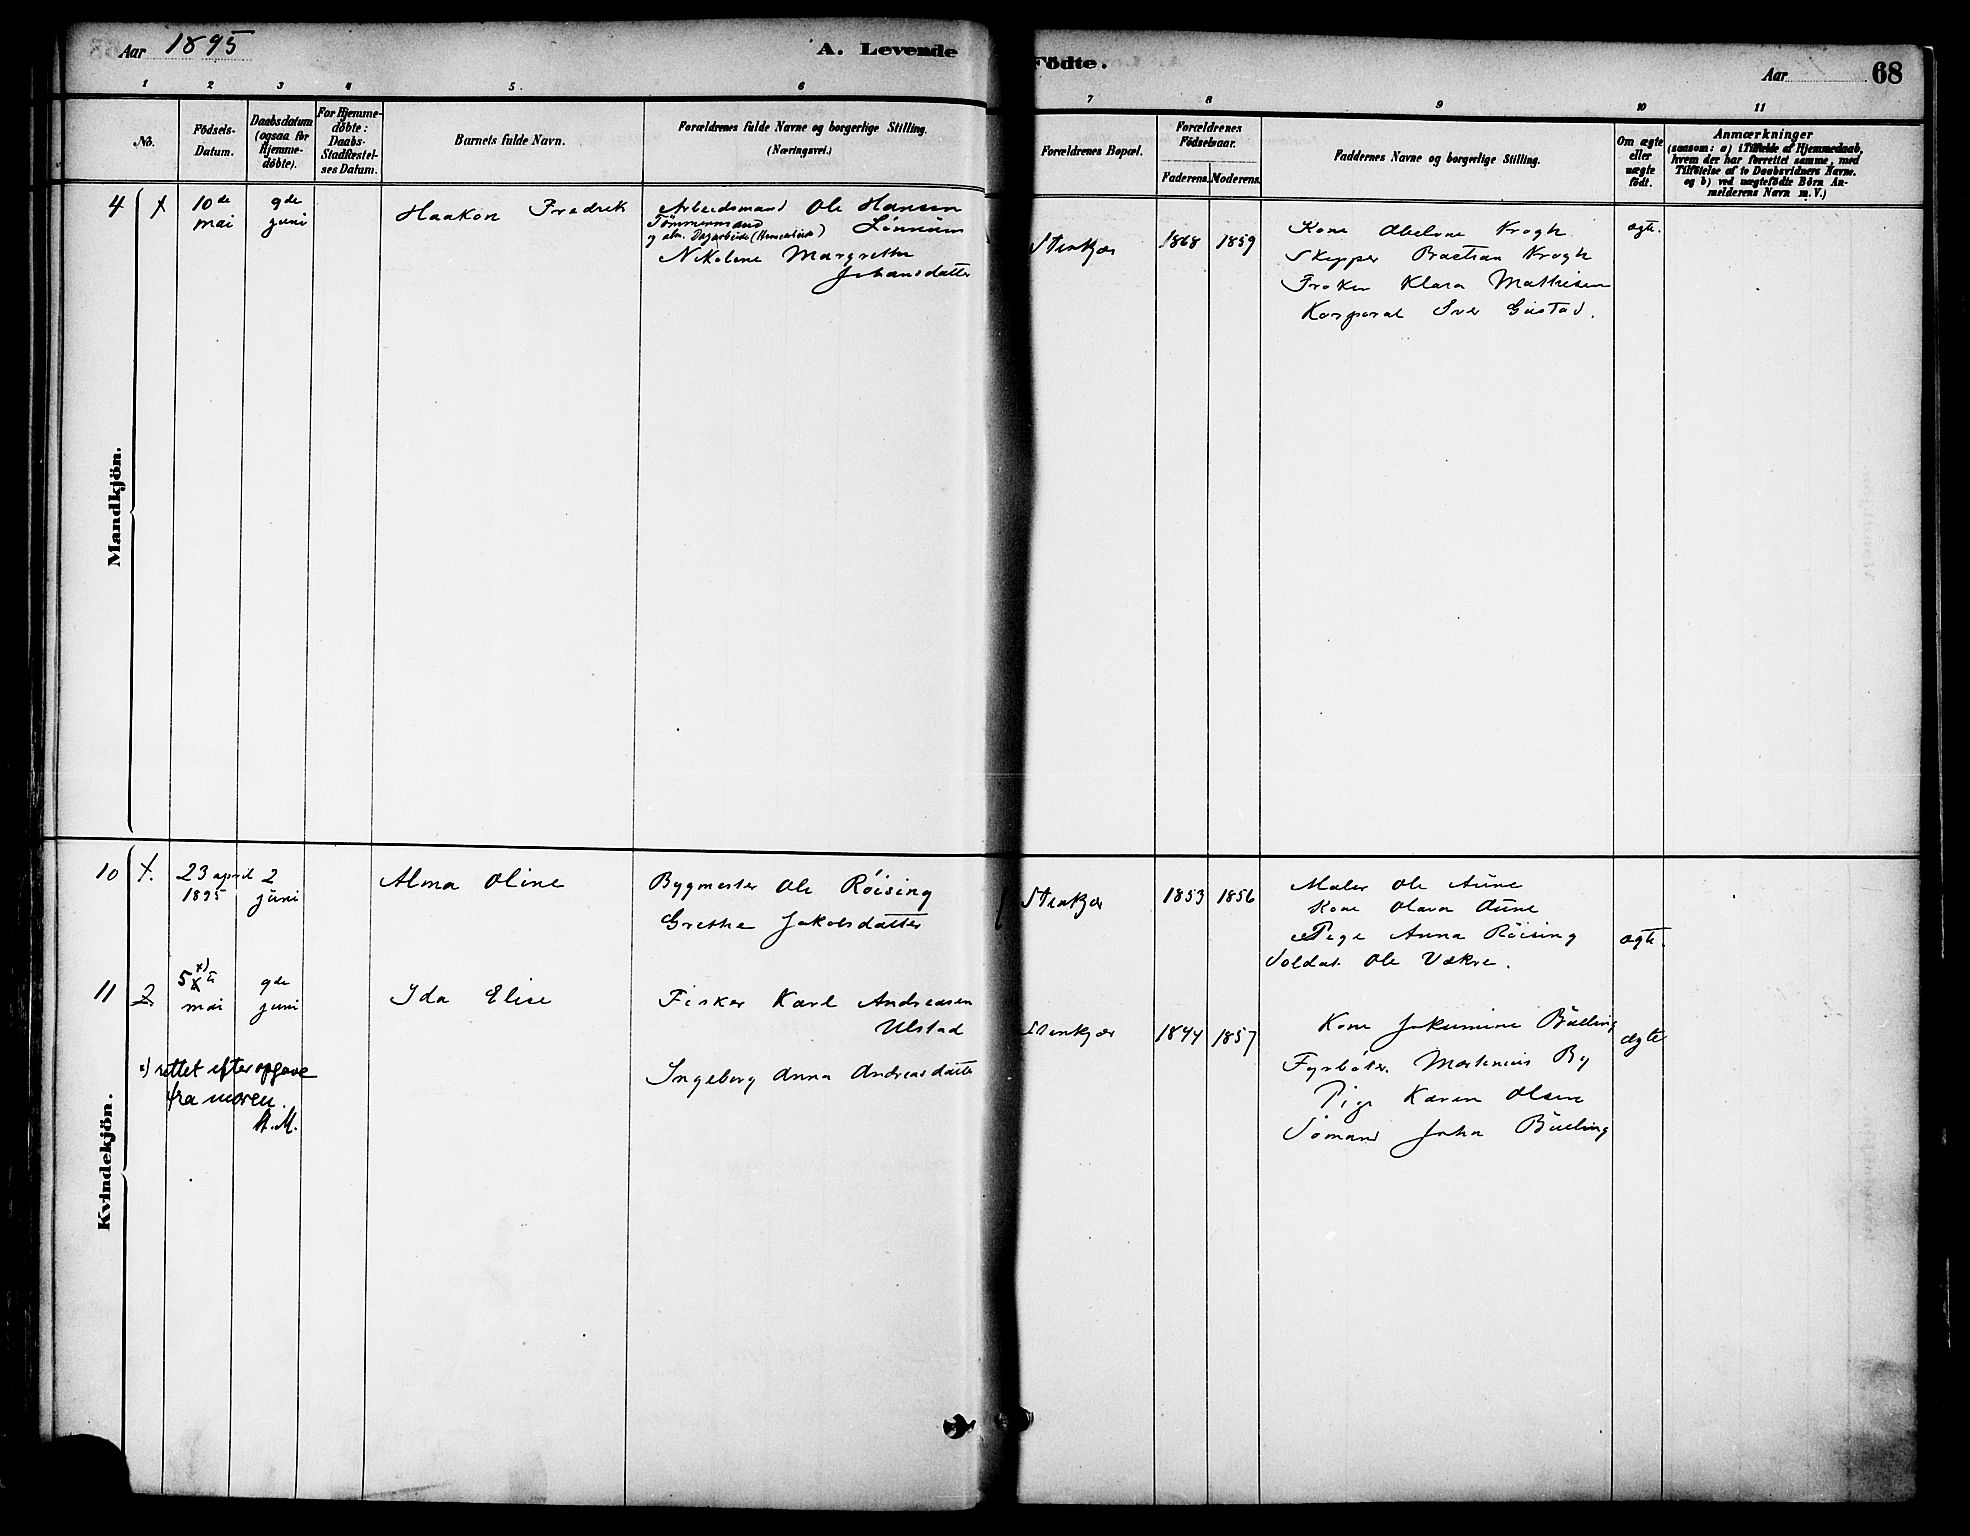 Aar 1895
A. Levende
Födte.
Aar
68
1 2 3 4 5. 6 7 8 9 10 11
No.
Födsels-
Datum.
Daabsdatum
(ogsaa for
Hjemme-
döbte).
For Hjemme-
döbte:
Daabs-
Stadfæstel-
ses Datum.
Barnets fulde Navn.
Forældrenes fulde Navne og borgerlige Stilling.
(Næringsvei.)
Forældrenes Bopæl.
Forældrenes
Födselsaar.
Faderens. Moderens.
Faddernes Navne og borgerlige Stilling.
Om ægte
eller
uægte
født.
Anmærkninger
(saasom: a) i Tilfælde af Hjemmedaab,
hvem der har forrettet samme, med
Tilføielse af to Daabsvidners Navne.
og b) ved uægtefödte Börn An-
melderens Navn m. V.)
Mandkjön.
4
10de
mai
9de
juni
Haakon Fredrik
Arbeidsmand Ole Hansen
Tømmermand
og alm. Dagarbeide
Nikoline Margrethe
Johansdatter
Stenkjær
1868 1859
Kone Abeline Krogh
Skipper Bastian Krogh
Frøken Klara Mathisen
Korporal Iver Gustad.
ægte.
Kvindekjön.
10
1.
23 april
1895
2
juni
Alma Oline
Bygmester Ole Røising
Grethe Jakobsdatter
Stenkjær
1853 1856
Maler Ole Aune
Kone Olava Aune
Pige Anna Røising
Soldat Ole Vekre.
ægte.
11
2.
5te x)
mai
9de
juni
Ida Elise
Fisker Karl Andreasen
Ulstad
Ingeborg Anna Andreasdatter
Stenkjær
1844 1857
Kone Jakumine
Fyrbøter Martinius By
Pige Karen Olsen
Sømand John
ægte
x) rettet efter opgave
fra moren.
A.M.